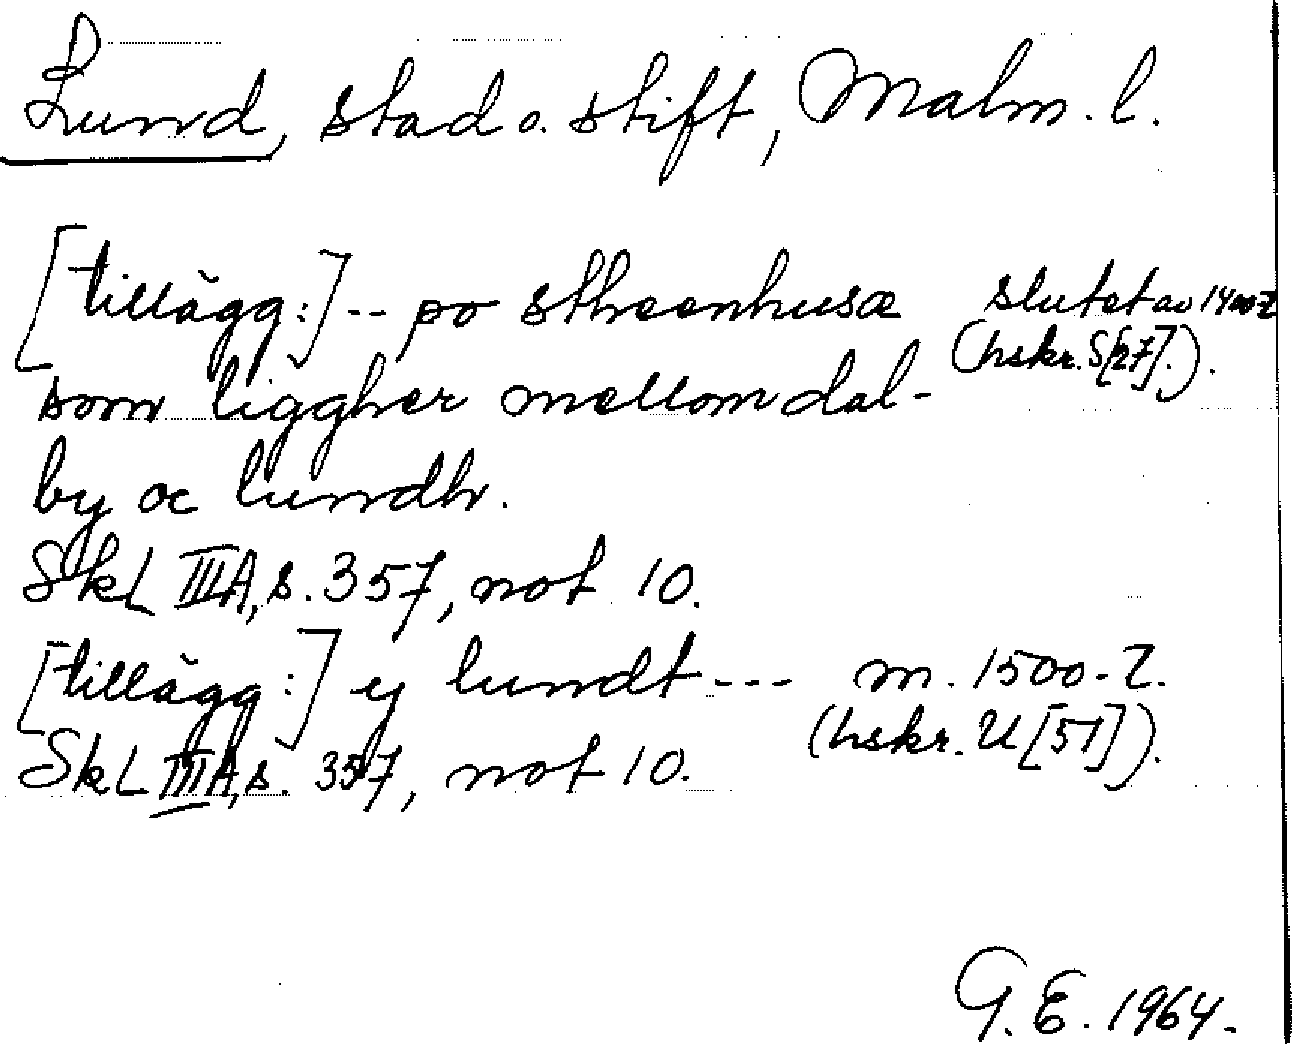 Lund, stad o. stift, Malm. l.
[tillägg:] -- po stheenhusæ slutet av 1400-t
(hskr. S[27].).
som liggher mellom dal-
by oc lundh.
SkL III A, s. 357, not 10.
[tillägg:] ej lundt --- m. 1500-t.
(hskr. U [51]).
SkL III A, s. 357, not 10.
G. E. 1964.